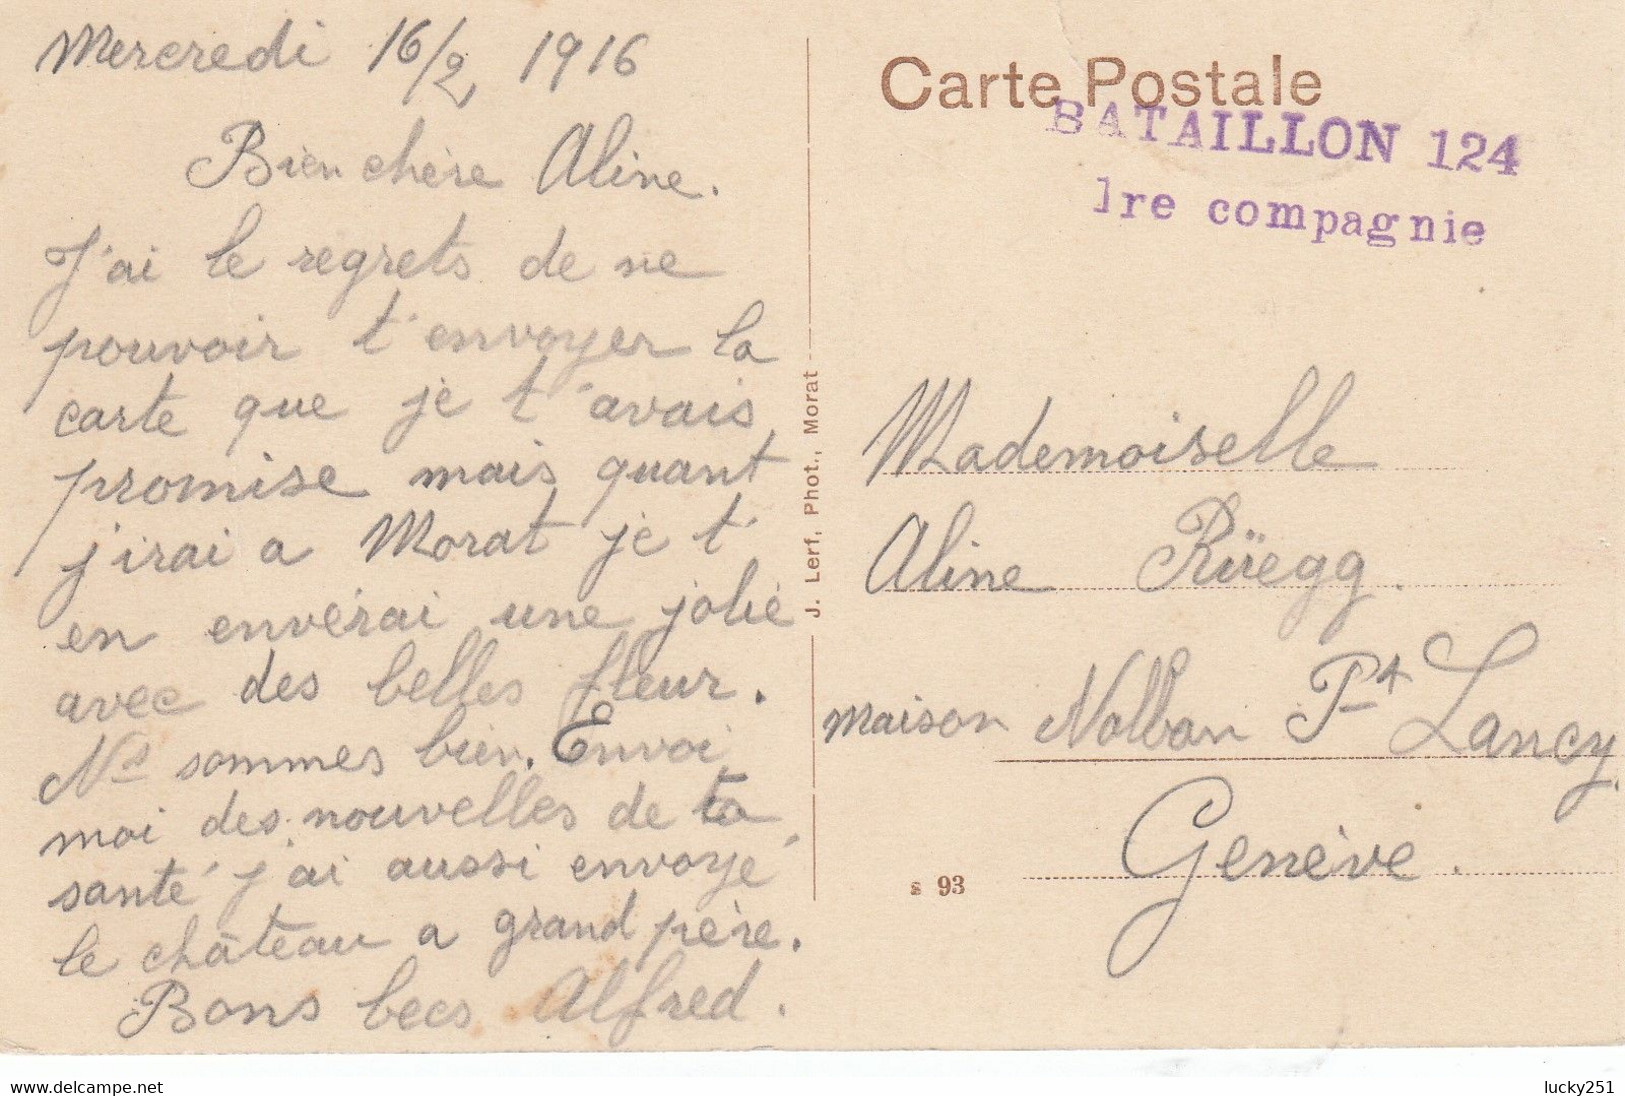 Mercredi 16/2 1916
Bien chère Aline.
J'ai le regrets de ne
pouvoir t'envoyer la
carte que je t'avais
promise mais quant
j'irai a Morat je t'
en enverai une jolie
avec des belles fleur.
Ns sommes bien. Envoi
moi des nouvelles de ta
santé j'ai aussi envoyé
le château a grand père.
Bons becs Alfred.
J. Lerf, Phot., Morat
Carte Postale
BATAILLON 124
1re compagnie
Mademoiselle
Aline Rüegg.
maison Nalban Pt Lancy
Genève.
s 93
delcampe.net
lucky251